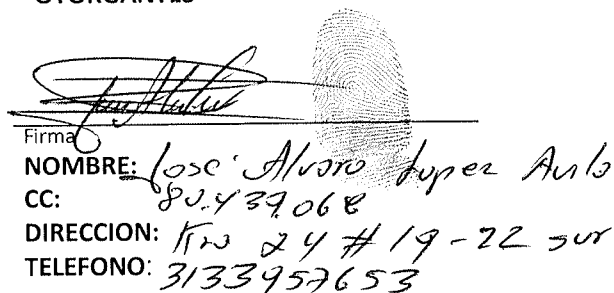 OTORGANTES
Firma
NOMBRE: Jose Alvaro Lopez
CC: 80.439.068
DIRECCION: Kra 24 # 19-22 sur
TELEFONO: 3133957653